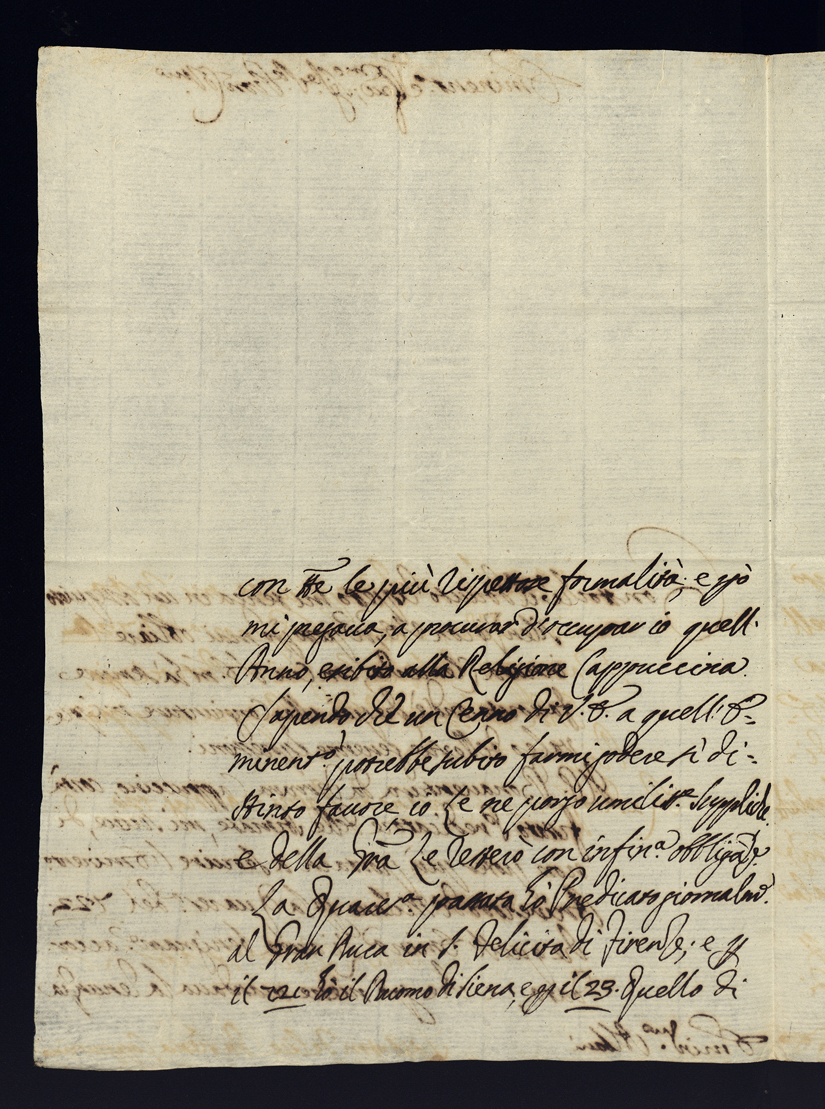 con tte le più rispettose formalità; e già
mi pregava, a procurar d'occupar io quell'
Anno, esibito alla Religione Cappuccina.
Sapendo che un Cenno di V. E. a quell' E-
minent.o potrebbe subito farmi godere sì di-
stinto favore io Le ne porgo umilis.e Suppliche
e della Gra Le resterò con infin.a obbligaz.e
La Quares.a passata hò Predicato giornalm.e
al Gran Duca in S. Felicita di Firenze; e p
il 22. hò il Duomo di Siena, e p il 23. Quello di
Emin.mo Albani